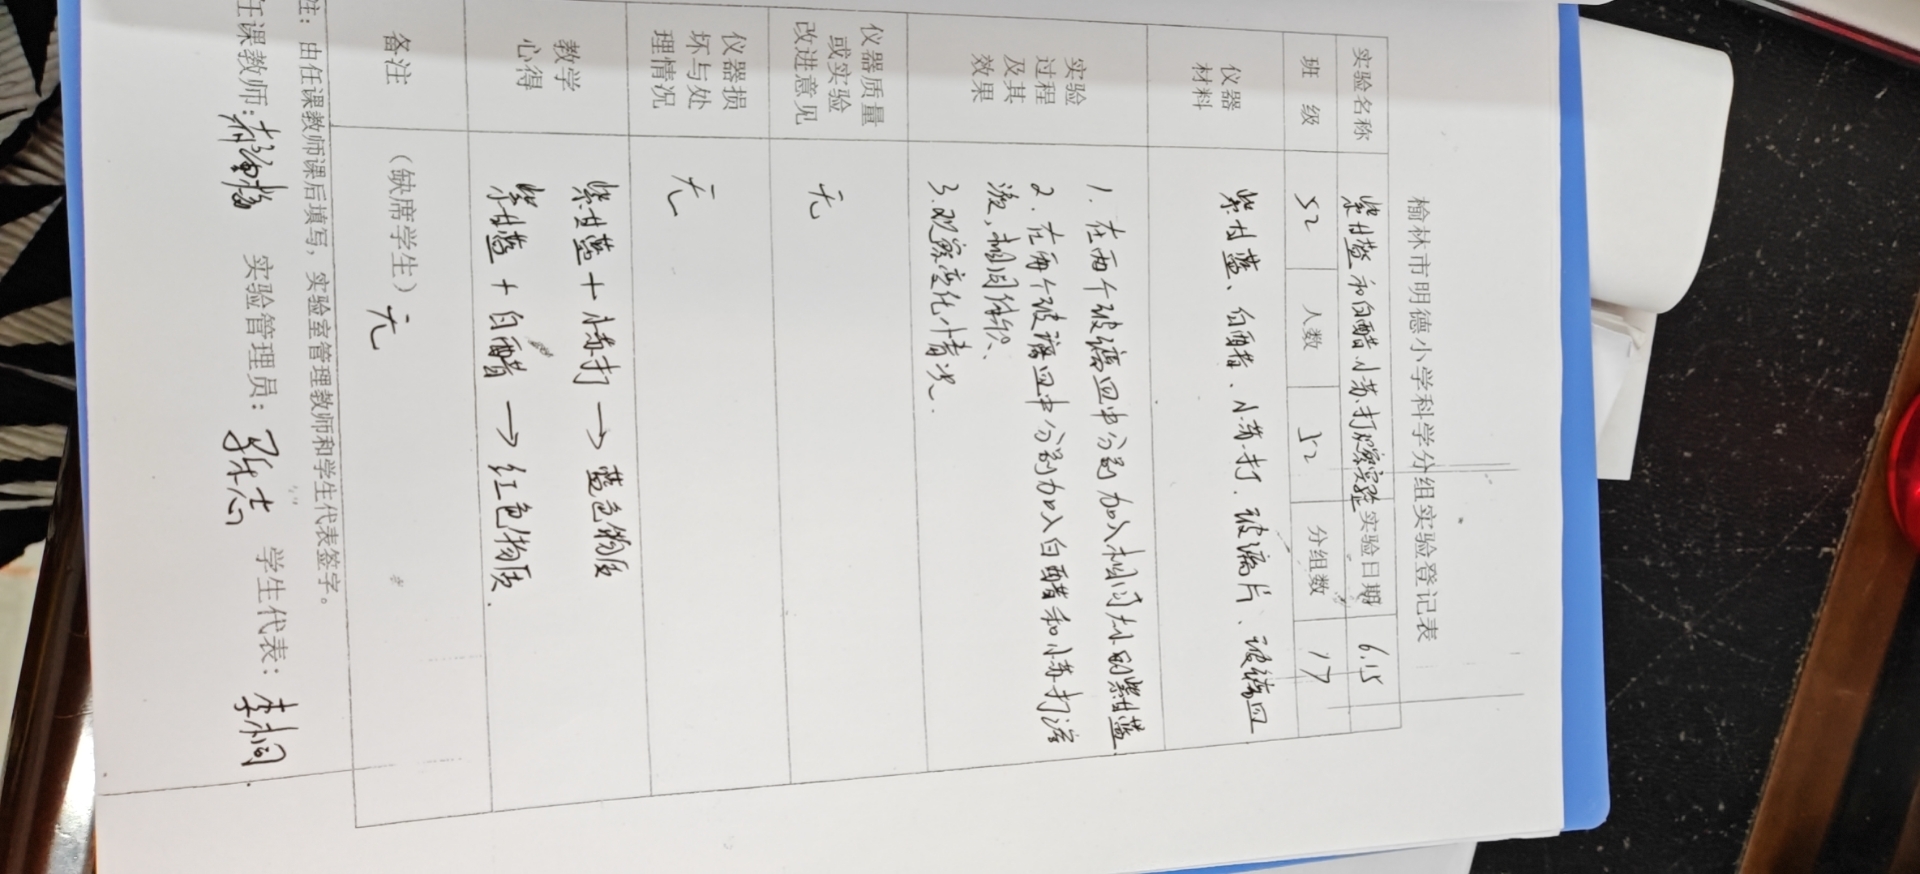 榆林市明德小学科学分组实验登记表
实验名称 紫甘蓝和白醋、小苏打 实验 实验日期 6.15
班 级 52 人数 52 分组数 17
仪器材料 紫甘蓝、白醋、小苏打、玻璃片、玻璃皿
实验过程及其效果
1. 在两个玻璃皿中分别加入相同大小的紫甘蓝
2. 在两个玻璃皿中分别加入白醋和小苏打溶
液,相同体积、
3. 观察变化情况.
仪器质量或实验改进意见 无
仪器损坏与处理情况 无
教学心得
紫甘蓝 + 小苏打 → 蓝色物质
紫甘蓝 + 白醋 → 红色物质.
备注 (缺席学生) 无
注:由任课教师课后填写,实验室管理教师和学生代表签字。
任课教师: 实验管理员: 学生代表: 李桐